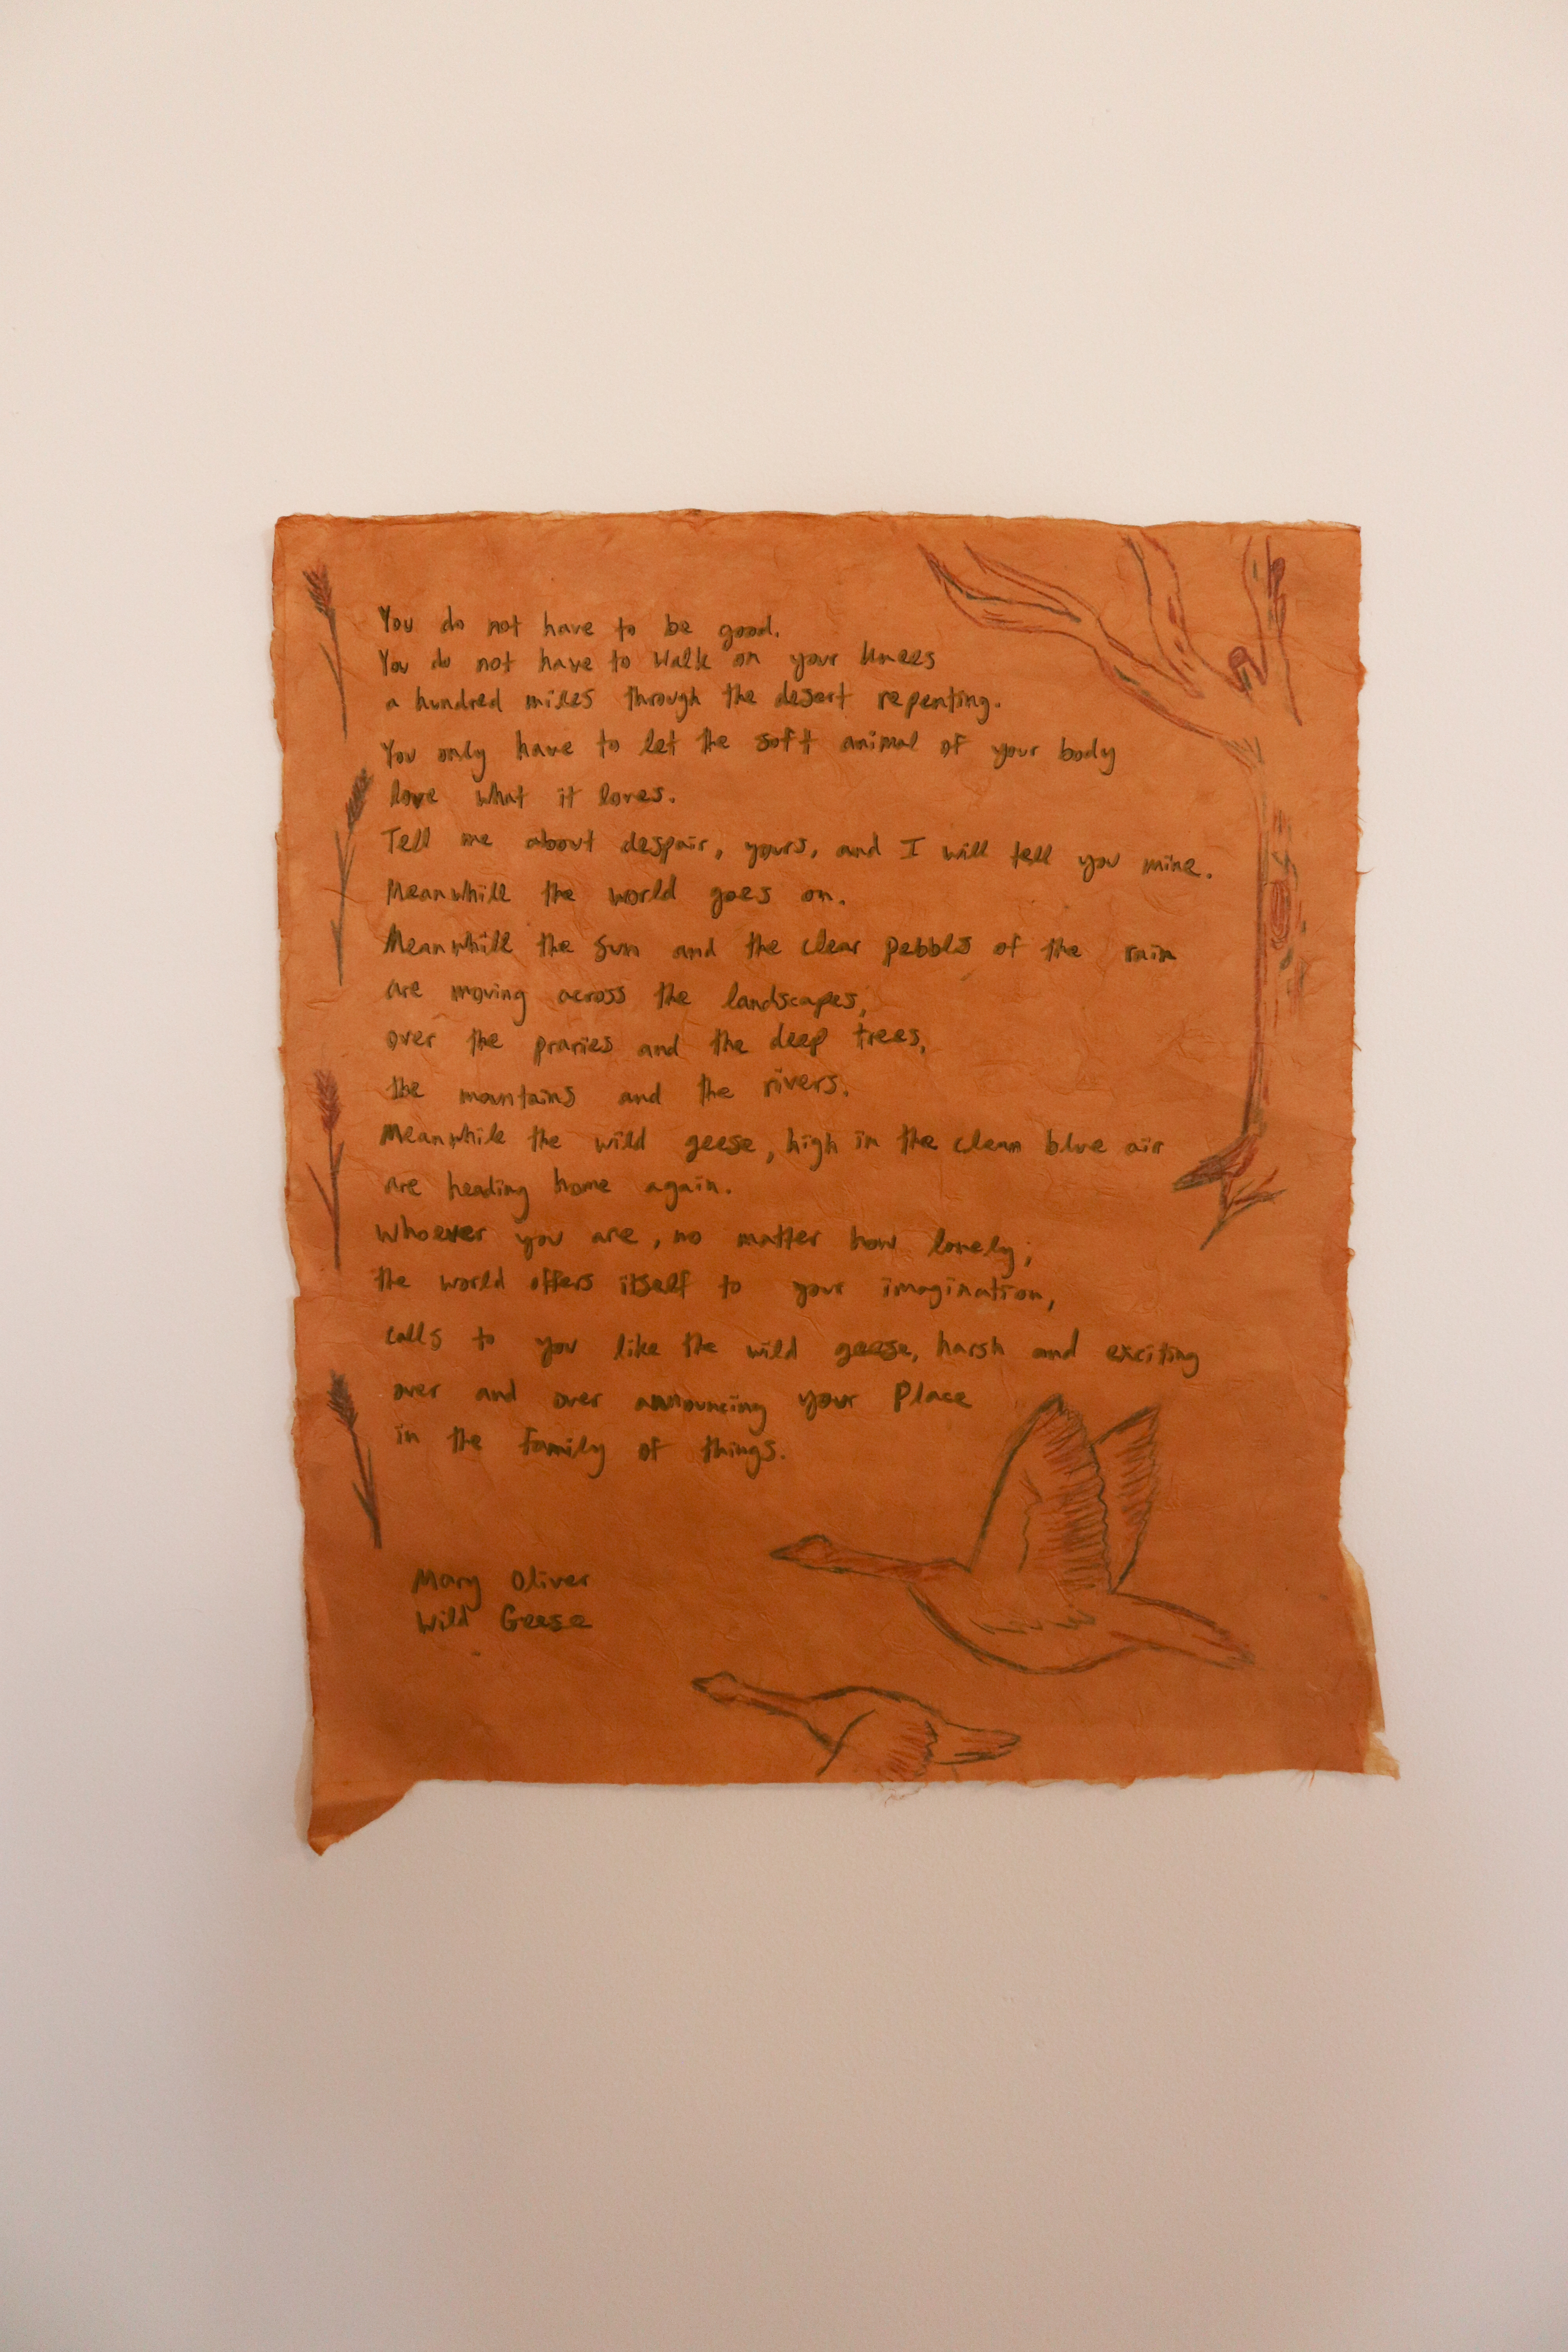 You do not have to be good.
You do not have to walk on your knees
a hundred miles through the desert repenting.
You only have to let the soft animal of your body
love what it loves.
Tell me about despair, yours, and I will tell you mine.
Meanwhile the world goes on.
Meanwhile the sun and the clear pebbls of the rain
are moving across the landscapes,
over the praries and the deep trees,
the mountains and the rivers.
Meanwhile the wild geese, high in the clean blue air
are heading home again.
Whoever you are, no matter how lonely,
the world offers itself to your imagination,
calls to you like the wild geese, harsh and exciting
over and over announcing your Place
in the family of things.
Mary Oliver
Wild Geese